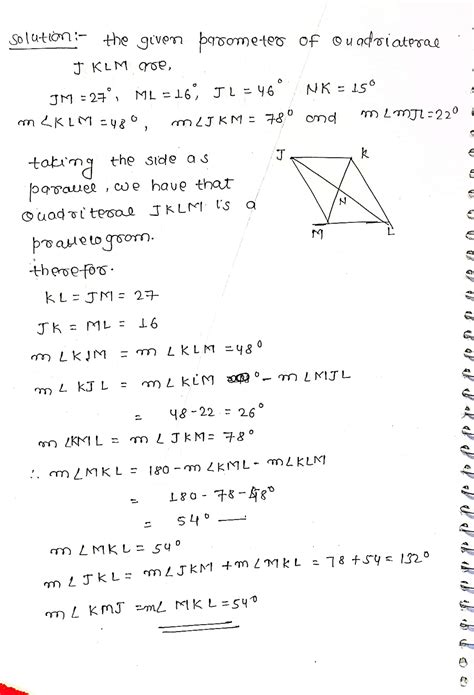 Solution:- the given parometer of Quadriaterae
JKLM are,
JM = 27°, ML = 16°, JL = 46° NK = 15°
m∠KLM = 48°, m∠JKM = 78° and m∠MJL = 22°
taking the side as
parauel, we have that
Quadriteral JKLM is a
prallelogram.
therefor.
J K
N
M L
KL = JM = 27
JK = ML = 16
m∠KJM = m∠KLM = 48°
m∠KJL = m∠KLM ° - m∠MJL
= 48-22 = 26°
m∠KML = m∠JKM = 78°
∴ m∠MKL = 180-m∠KML-m∠KLM
= 180-78-48°
= 54°
m∠MKL = 54°
m∠JKL = m∠JKM + m∠MKL = 78 + 54 = 132°
m∠KMJ = m∠MKL = 54°